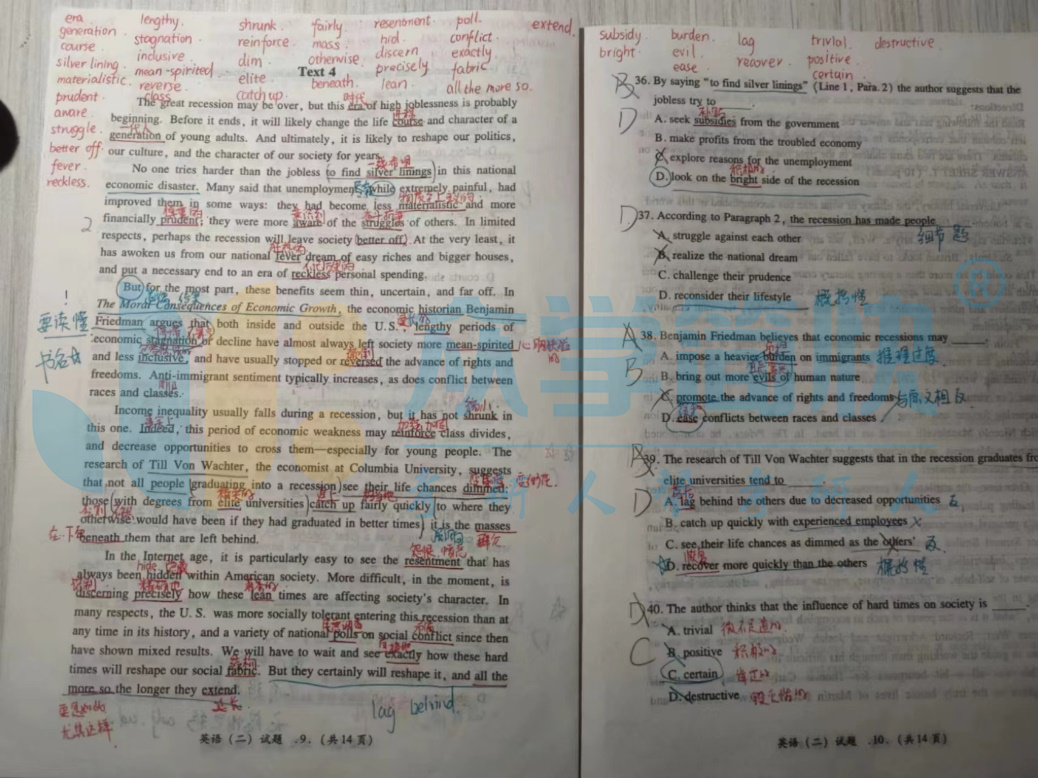 era
generation.
course
silver lining.
materialistic.
prudent.
aware.
struggle.
better off.
fever.
reckless.
lengthy.
stagnation.
inclusive.
mean-spirited.
reverse.
class
shrunk.
reinforce.
dim.
elite
catch up.
fairly.
mass.
otherwise.
beneath.
resentment.
hid.
discern
precisely.
lean.
poll.
conflict.
exactly
fabric
all the more so.
extend.
Text 4
The great recession may be over, but this era of high joblessness is probably
beginning. Before it ends, it will likely change the life course and character of a
generation of young adults. And ultimately, it is likely to reshape our politics,
our culture, and the character of our society for years.
No one tries harder than the jobless to find silver linings in this national
economic disaster. Many said that unemployment, while extremely painful, had
improved them in some ways: they had become less materialistic and more
financially prudent; they were more aware of the struggles of others. In limited
respects, perhaps the recession will leave society better off. At the very least, it
has awoken us from our national fever dream of easy riches and bigger houses,
and put a necessary end to an era of reckless personal spending.
But for the most part, these benefits seem thin, uncertain, and far off. In
The Moral Consequences of Economic Growth, the economic historian Benjamin
Friedman argues that both inside and outside the U.S., lengthy periods of
economic stagnation or decline have almost always left society more mean-spirited
and less inclusive, and have usually stopped or reversed the advance of rights and
freedoms. Anti-immigrant sentiment typically increases, as does conflict between
races and classes.
Income inequality usually falls during a recession, but it has not shrunk in
this one. Indeed, this period of economic weakness may reinforce class divides,
and decrease opportunities to cross them—especially for young people. The
research of Till Von Wachter, the economist at Columbia University, suggests
that not all people graduating into a recession see their life chances dimmed:
those with degrees from elite universities catch up fairly quickly to where they
otherwise would have been if they had graduated in better times; it is the masses
beneath them that are left behind.
In the Internet age, it is particularly easy to see the resentment that has
always been hidden within American society. More difficult, in the moment, is
discerning precisely how these lean times are affecting society's character. In
many respects, the U.S. was more socially tolerant entering this recession than at
any time in its history, and a variety of national polls on social conflict since then
have shown mixed results. We will have to wait and see exactly how these hard
times will reshape our social fabric. But they certainly will reshape it, and all the
more so the longer they extend.
延长
尤其这样
lag behind.
英语（二）试题 .9.（共14页）
要读懂
书名
subsidy
bright.
burden.
evil
ease
lag
recover.
trivial.
positive
certain
destructive.
36. By saying "to find silver linings" (Line 1, Para. 2) the author suggests that the
jobless try to ____.
D
A. seek subsidies from the government
B. make profits from the troubled economy
C. explore reasons for the unemployment
D. look on the bright side of the recession
37. According to Paragraph 2, the recession has made people
A. struggle against each other 细节题
B. realize the national dream
C. challenge their prudence
D. reconsider their lifestyle 概括性
38. Benjamin Friedman believes that economic recessions may ____.
A. impose a heavier burden on immigrants 推理过度
B. bring out more evils of human nature
C. promote the advance of rights and freedoms 与原文相反
D. ease conflicts between races and classes
39. The research of Till Von Wachter suggests that in the recession graduates from
elite universities tend to
A. lag behind the others due to decreased opportunities 反
B. catch up quickly with experienced employees ×
C. see their life chances as dimmed as the others' 反
D. recover more quickly than the others 概括性
40. The author thinks that the influence of hard times on society is ____.
A. trivial 微不足道的
B. positive 积极的
C. certain 肯定的
D. destructive 毁灭性的
英语（二）试题 .10.（共14页）